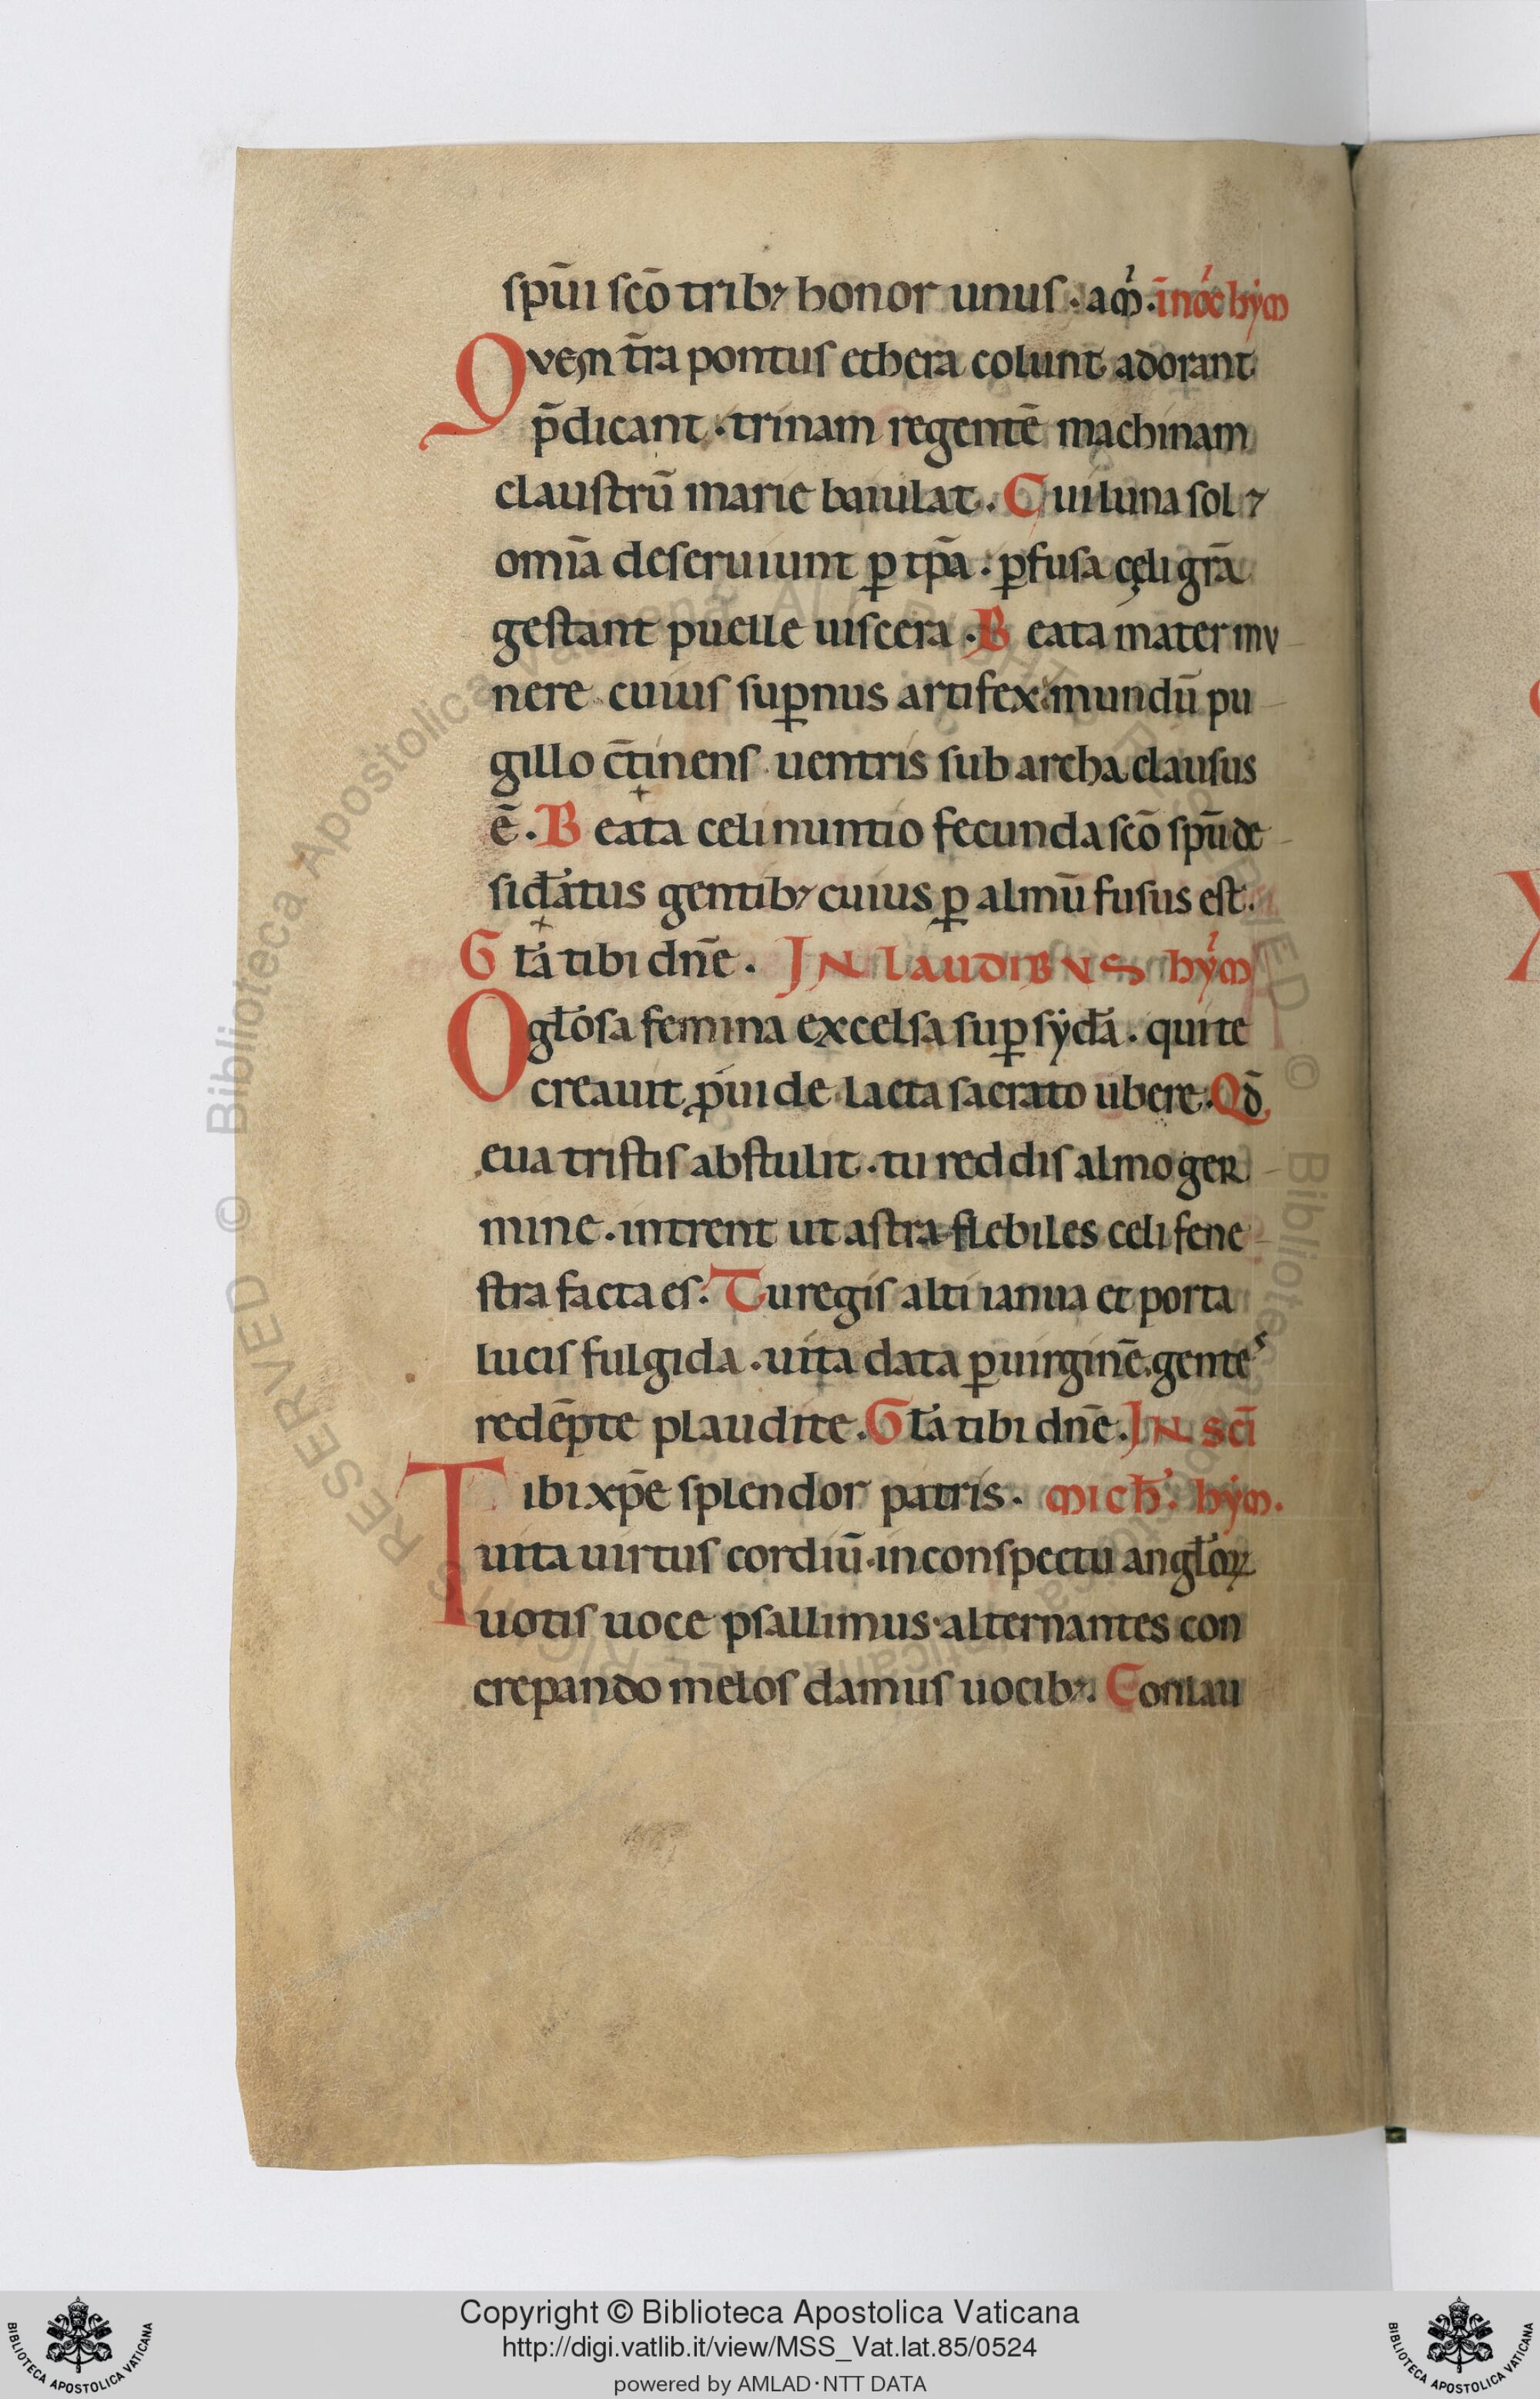 sp̄ui scō trib⁊ honor unus. am̉. īnoc̉ hym̉
Quem t̄ra pontus ethera colunt adorant
p̄dicant. trinam regentē machinam
claustrū marie baiulat. Cui luna sol ⁊
om̄ia deseruiunt ꝑ tp̄a. ꝑfusa cęli gr̄a
gestant puelle uiscera. Beata mater mu
nere cuius suꝑnus artifex mundū pu
gillo c̄tinens uentris sub archa clausus
ē. Beata celi nuntio fecunda scō sp̄u de
sid̄atus gentib⁊ cuius ꝑ almū fusus est.
Gl̄a tibi dn̄e. IN LAUDIBUS hym̉
O gl̄osa femina excelsa suꝑ syd̄a. qui te
creauit ꝓuide lacta sacrato ubere. Qd̄
eua tristis abstulit. tu reddis almo ger
mine. intrent ut astra flebiles celi fene
stra facta es. Tu regis alti ianua et porta
lucis fulgida. uita data ꝑ uirginē gentes
redēpte plaudite. Gl̄a tibi dn̄e. IN SCĪ
Tibi xp̄e splendor patris. mich̄. hym̉.
uita uirtus cordiū. in conspectu angl̄oꝝ
uotis uoce psallimus. alternantes con
crepando melos damus uocib⁊. Conlau
Copyright © Biblioteca Apostolica Vaticana
http://digi.vatlib.it/view/MSS_Vat.lat.85/0524
powered by AMLAD·NTT DATA
BIBLIOTECA APOSTOLICA VATICANA
BIBLIOTECA APOSTOLICA VATICANA